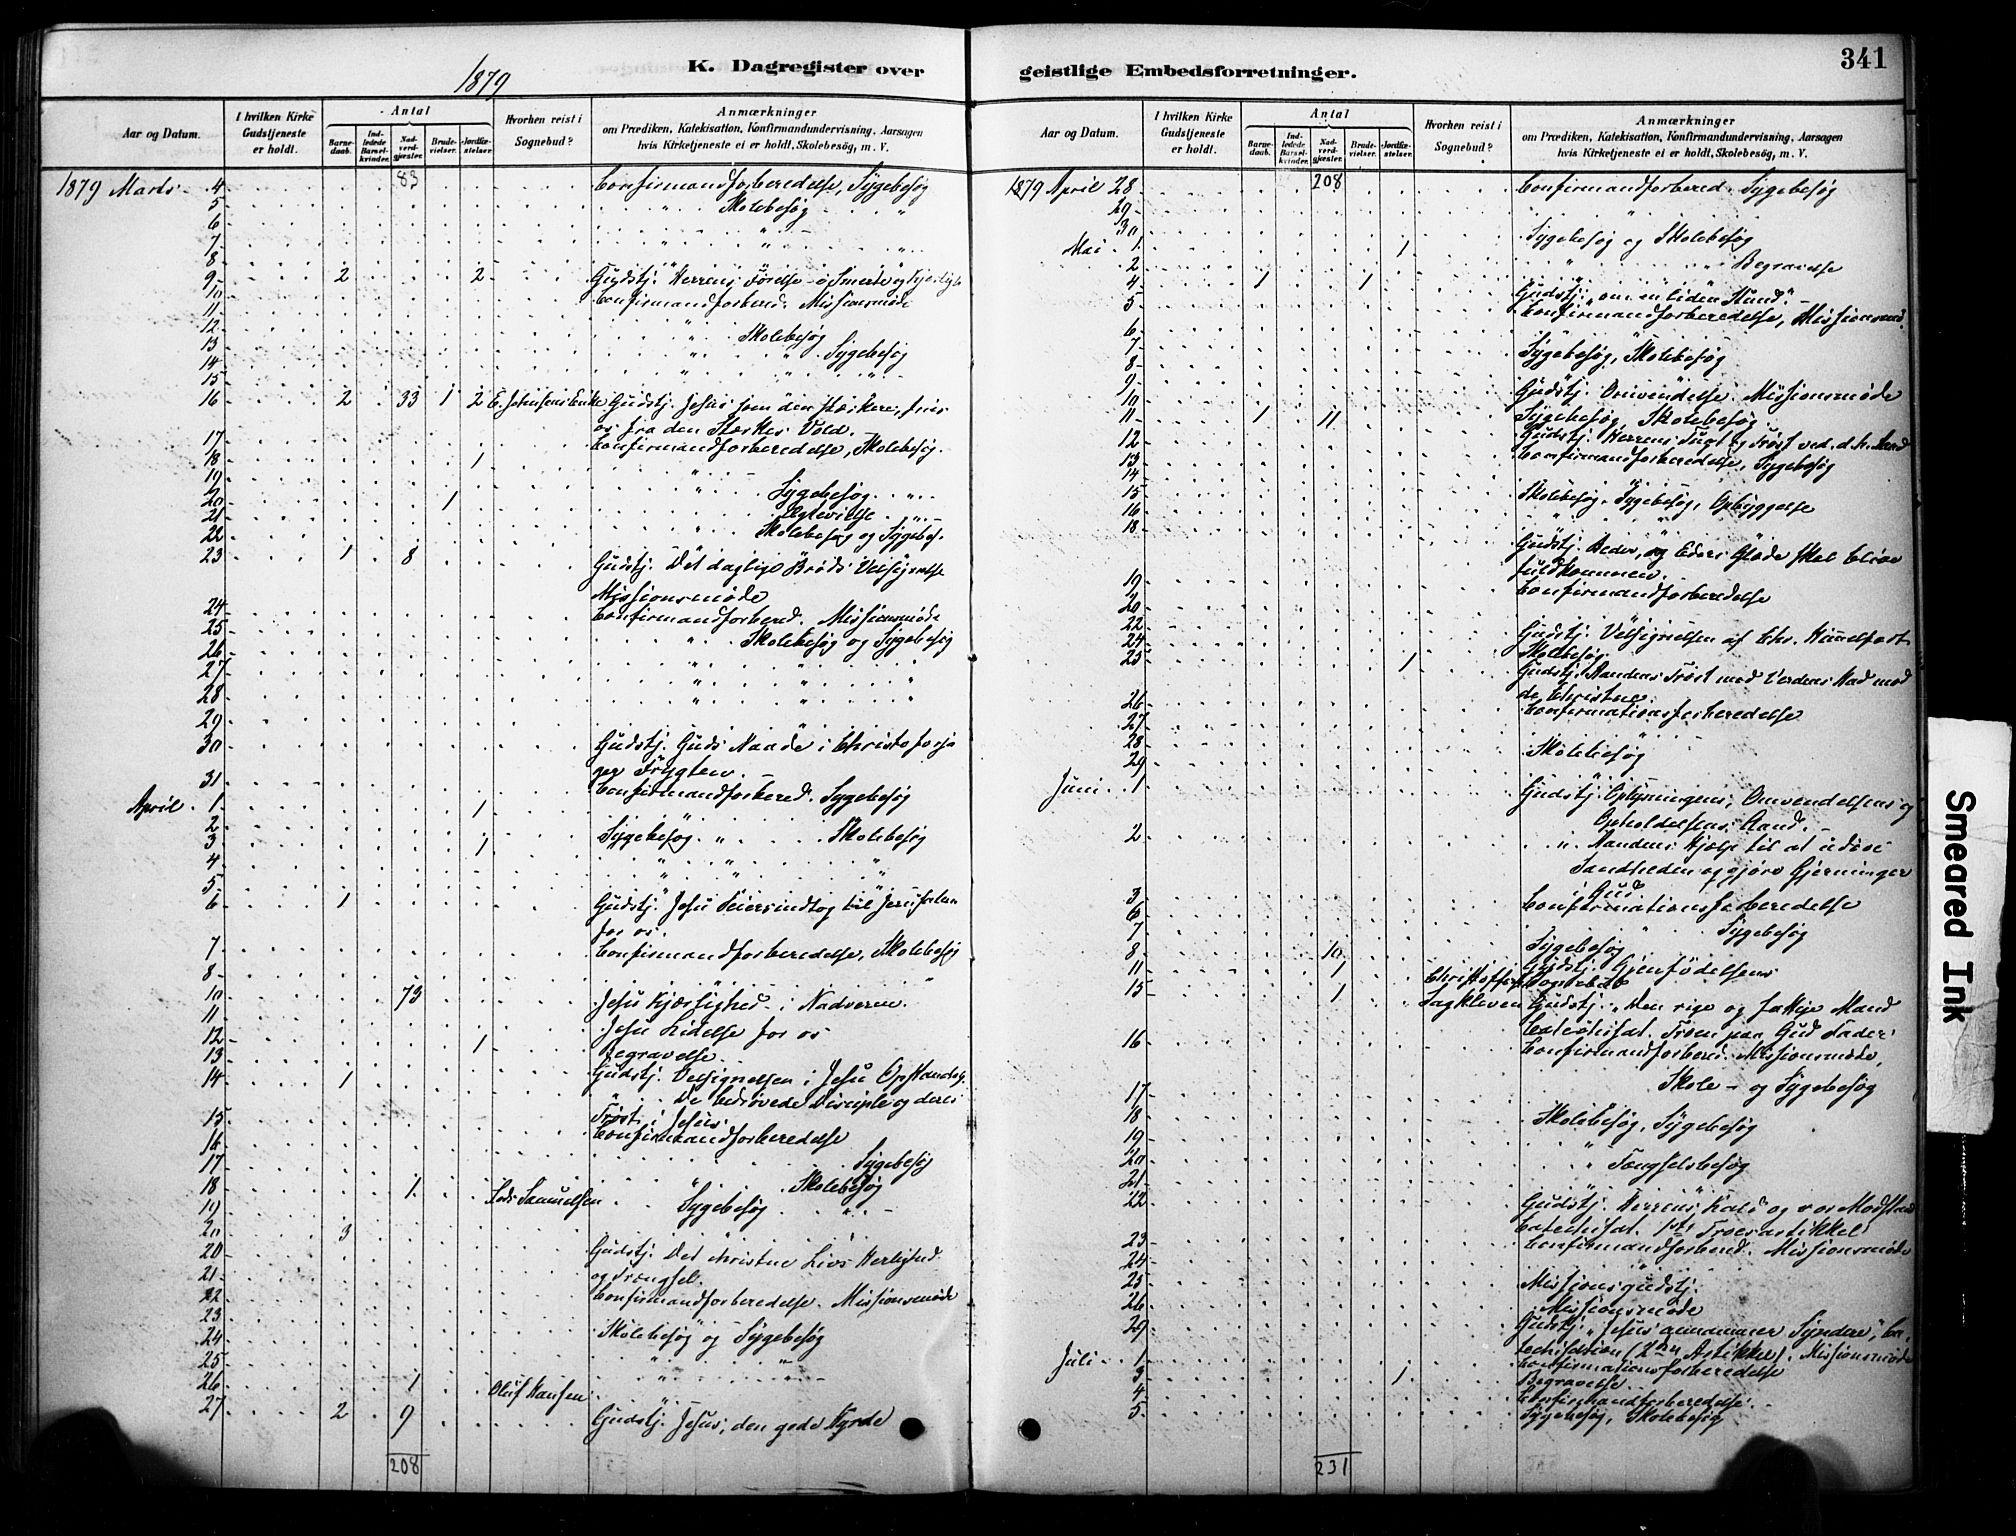 1879
K. Dagregister over
Aar og Datum.
I hvilken Kirke Gudstjeneste er holdt.
Antal
Barnedaab.
Indledede Barselkvinder.
Nadverdgjester.
Brudevielser.
Jordfæstelser.
Hvorhen reist i Sognebud?
Anmærkninger
om Prædiken, Katekisation, Konfirmandundervisning, Aarsagen
hvis Kirketjeneste ei er holdt, Skolebesög, m. V.
83
1879 Marts 4 Confirmandforberedelse, Sygebesøg
5 " " Skolebesøg "
6 " "
7 " " "
8
9 2 2 Gudstj. Herrens Førelse
10 Confirmandforbered. Missionsmøde
11
12 " Skolebesøg
13 " " Sygebesøg
14 " " "
15
16 2 33 1 2 E. Johnsens Enke Gudstj. Jesus som den stærkere, fries
os fra den Stærkes Vold.
17 Confirmandforberedelse, Skolebesøg.
18 1
19 " Sygebesøg "
20 1 Ægtevielse "
21 " Skolebesøg og Sygebes.
22
23 1 8 Gudstj. Det daglige Brøds Velsignelse
Missionsmøde
24 Confirmandforbered. Missionsmøde
25 " " Skolebesøg og Sygebesøg
26 " " "
27 " " "
28
29
30 Gudstj. Guds Naade i Christo forja
ger Frygten.
31 Confirmandforbered. Sygebesøg
April 1 1
2 Sygebesøg " Skolebesøg
3 1
4 " " "
5
6 1 Gudstj. Jesu Seiersindtog til Jerusalem
for os.
7 Confirmandforberedelse, Skolebesøg
8
10 73 Jesu Kjærlighed i Nadveren.
11 Jesu Lidelse for os
12 1 Begravelse
13 Gudstj. Velsignelsen i Jesu Opstandelse
14 1 " De bedrøvede Disciple og deres
Trøst i Jesus.
15 Confirmandforberedelse
16 Sygebesøg
17 " Skolebesøg
18 1 Lods Samuelsen Sygebesøg "
19
20 3
20 Gudstj. Det christne Livs Herlighed
og Trængsel.
21 Confirmandforberedelse. Missionsmøde
22
23 Skolebesøg og Sygebesøg
24
25 " " "
26 1 Oluf Hansen
27 2 9 Gudstj. Jesus, den gode Hyrde
208
geistlige Embedsforretninger.
341
Aar og Datum.
I hvilken Kirke Gudstjeneste er holdt.
Antal
Barnedaab.
Indledede Barselkvinder.
Nadverdgjester.
Brudevielser.
Jordfæstelser.
Hvorhen reist i Sognebud?
Anmærkninger
om Prædiken, Katekisation, Konfirmandundervisning, Aarsagen
hvis Kirketjeneste ei er holdt, Skolebesög, m. V.
1879 April 28 208 Confirmandforbered. Sygebesøg
29 "
30 Sygebesøg og Skolebesøg
Mai 1 1 " " Begravelse
2
4 1 1 Gudstj. "om en liden Stund".
5 Confirmandforberedelse, Missionsmød.
6
7 Sygebesøg, Skolebesøg
8
9 Gudstj. Omvendelse. Missionsmøde
10 Sygebesøg, Skolebesøg
11 1 11 Gudstj. Herrens Tugt og Trøst ved d. h. Aand
12 Confirmandforberedelse, Sygebesøg
13
14
15 Skolebesøg, Sygebesøg, Opbyggelse
16 " " "
18 Gudstj. Beder, og Eders Glæde skal blive
fuldkommen.
19 Confirmandforberedelse
20
22 Gudstj. Velsignelsen af Chr. Himmelfart
24 Skolebesøg
25 1 Gudstj. Aandens Trøst mod Verdens Had mod
de Christne.
26 Confirmationsforberedelse
27
28 Skolebesøg
29
Juni 1 Gudstj. Oplysningens, Omvendelsens og
Opholdelsens Aand.
2 " Aandens Hjælp til at udøve
Sandheden og gjøre Gjerninger
Gud
3 Confirmationsforberedelse
6
7 " Sygebesøg
8 10 Sygebesøg
11 1 Gudstj. Gjenfødelsens
15 1 Sagkleven Gudstj. "Den rige og fattige Mand
Catechisat. Troen paa Gud Fader
16 Confirmandforbered. Missionsmøde,
Skole- og Sygebesøg
17
18 Skolebesøg, Sygebesøg
19
20 " Fængselsbesøg
21
22 Gudstj. "Herrens Kald" og vor Modstand
Catechisat. 1ste Troesartikkel
23 Confirmandforbered. Missionsmøde
24
25 Missionsgudstj.
26 Missionsmøde
29 Gudstj. "Jesus annammer Syndere", Ca-
techisation (2den Artikkel). Missionsmøde
Juli 1 Confirmationsforberedelse
3 1 Begravelse
4 Confirmandforberedelse.
5 Sygebesøg, Skolebesøg
231
Smeared Ink